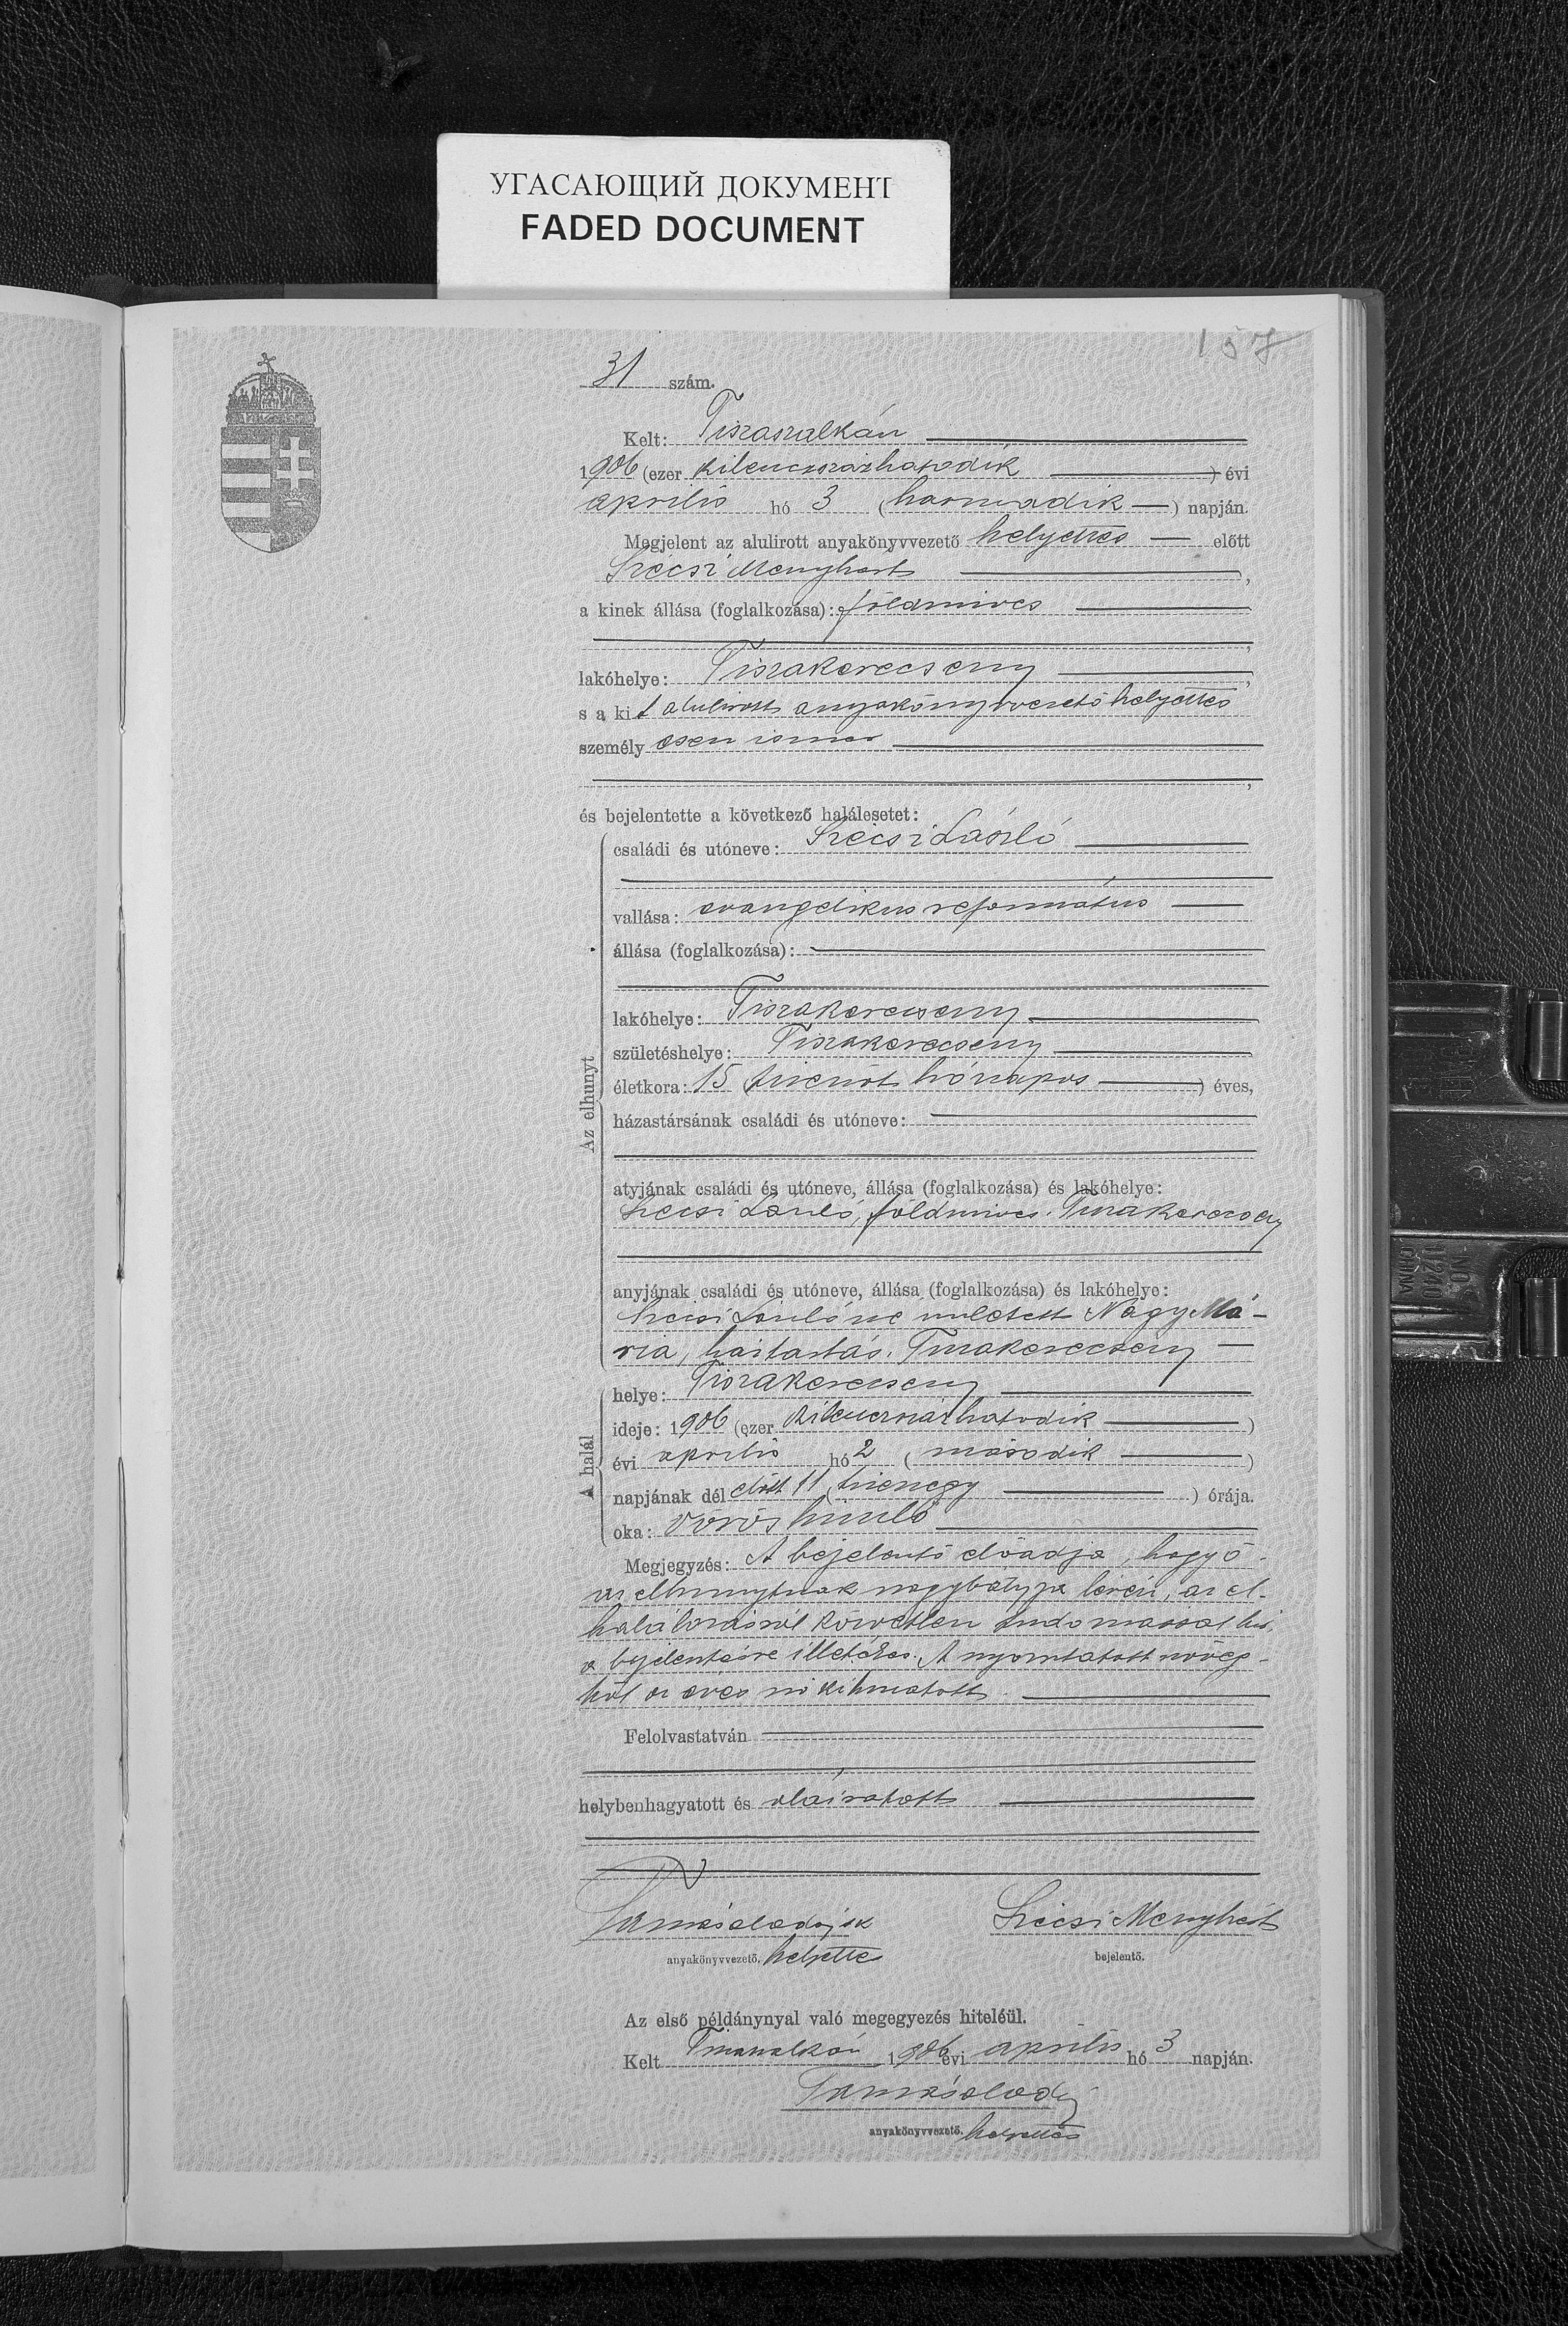 УГАСАЮЩИЙ ДОКУМЕНТ
FADED DOCUMENT
157
31 szám.
Kelt: Tiszaszalkán
1906 (ezer kilenczszázhatodik ) évi
április hó 3 (harmadik) napján.
Megjelent az alulirott anyakönyvvezető helyettes előtt
Szécsi Menyhért,
a kinek állása (foglalkozása): földmives
,
lakóhelye: Tiszakerecseny,
s a kit alulirott anyakönyvvezető helyettes
személyesen ismer
,
és bejelentette a következő halálesetet:
Az elhunyt
családi és utóneve: Szécsi László
vallása: evangelikus református
állása (foglalkozása):
lakóhelye: Tiszakerecseny
születéshelye: Tiszakerecseny
életkora: 15 (tizenöt hónapos) éves,
házastársának családi és utóneve:
atyjának családi és utóneve, állása (foglalkozása) és lakóhelye:
Szécsi László, földmives. Tiszakerecseny
anyjának családi és utóneve, állása (foglalkozása) és lakóhelye:
Szécsi Lászlóné született Nagy Má-
ria, háztartás. Tiszakerecseny
A halál
helye: Tiszakerecseny
ideje: 1906 (ezer kilenczszázhatodik )
évi április hó 2 (második )
napjának dél előtt 11 (tizenegy ) órája.
oka: vörös himlő
Megjegyzés: A bejelentő előadja, hogy ő
az elhunytnak nagybátyja lévén, az el-
halálozásról közvetlen tudomással bir,
a bejelentésre illetékes. A nyomtatott szöveg-
ből az éves szó kihuzatott
Felolvastatván
helybenhagyatott és aláiratott
anyakönyvvezető. helyettes
Szécsi Menyhért
bejelentő.
Az első példánynyal való megegyezés hiteléül.
Kelt Tiszaszalkán 1906 évi április hó 3 napján.
anyakönyvvezető. helyettes